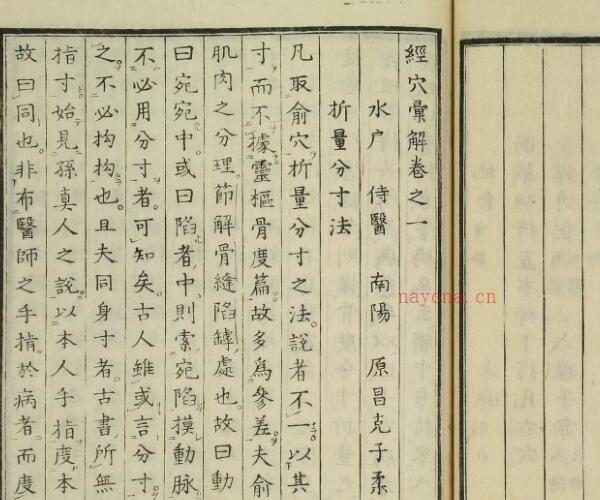 經穴彙解卷之一
水戶 侍醫 南陽 原昌克子柔
折量分寸法
凡取俞穴折量分寸之法。說者不一以其
寸而不據靈樞骨度篇。故多為參差。夫俞
肌肉之分理。節解骨縫陷罅處也。故曰動
曰宛宛中。或曰陷者中。則索宛陷摸動脈
不必用分寸者。可知矣。古人雖或言分寸。
之。不必拘拘也。且夫同身寸者。古書所無
指寸始見孫真人之說。以本人手指度本
故曰同也。非布醫師之手指於病者而度
nayona.cn